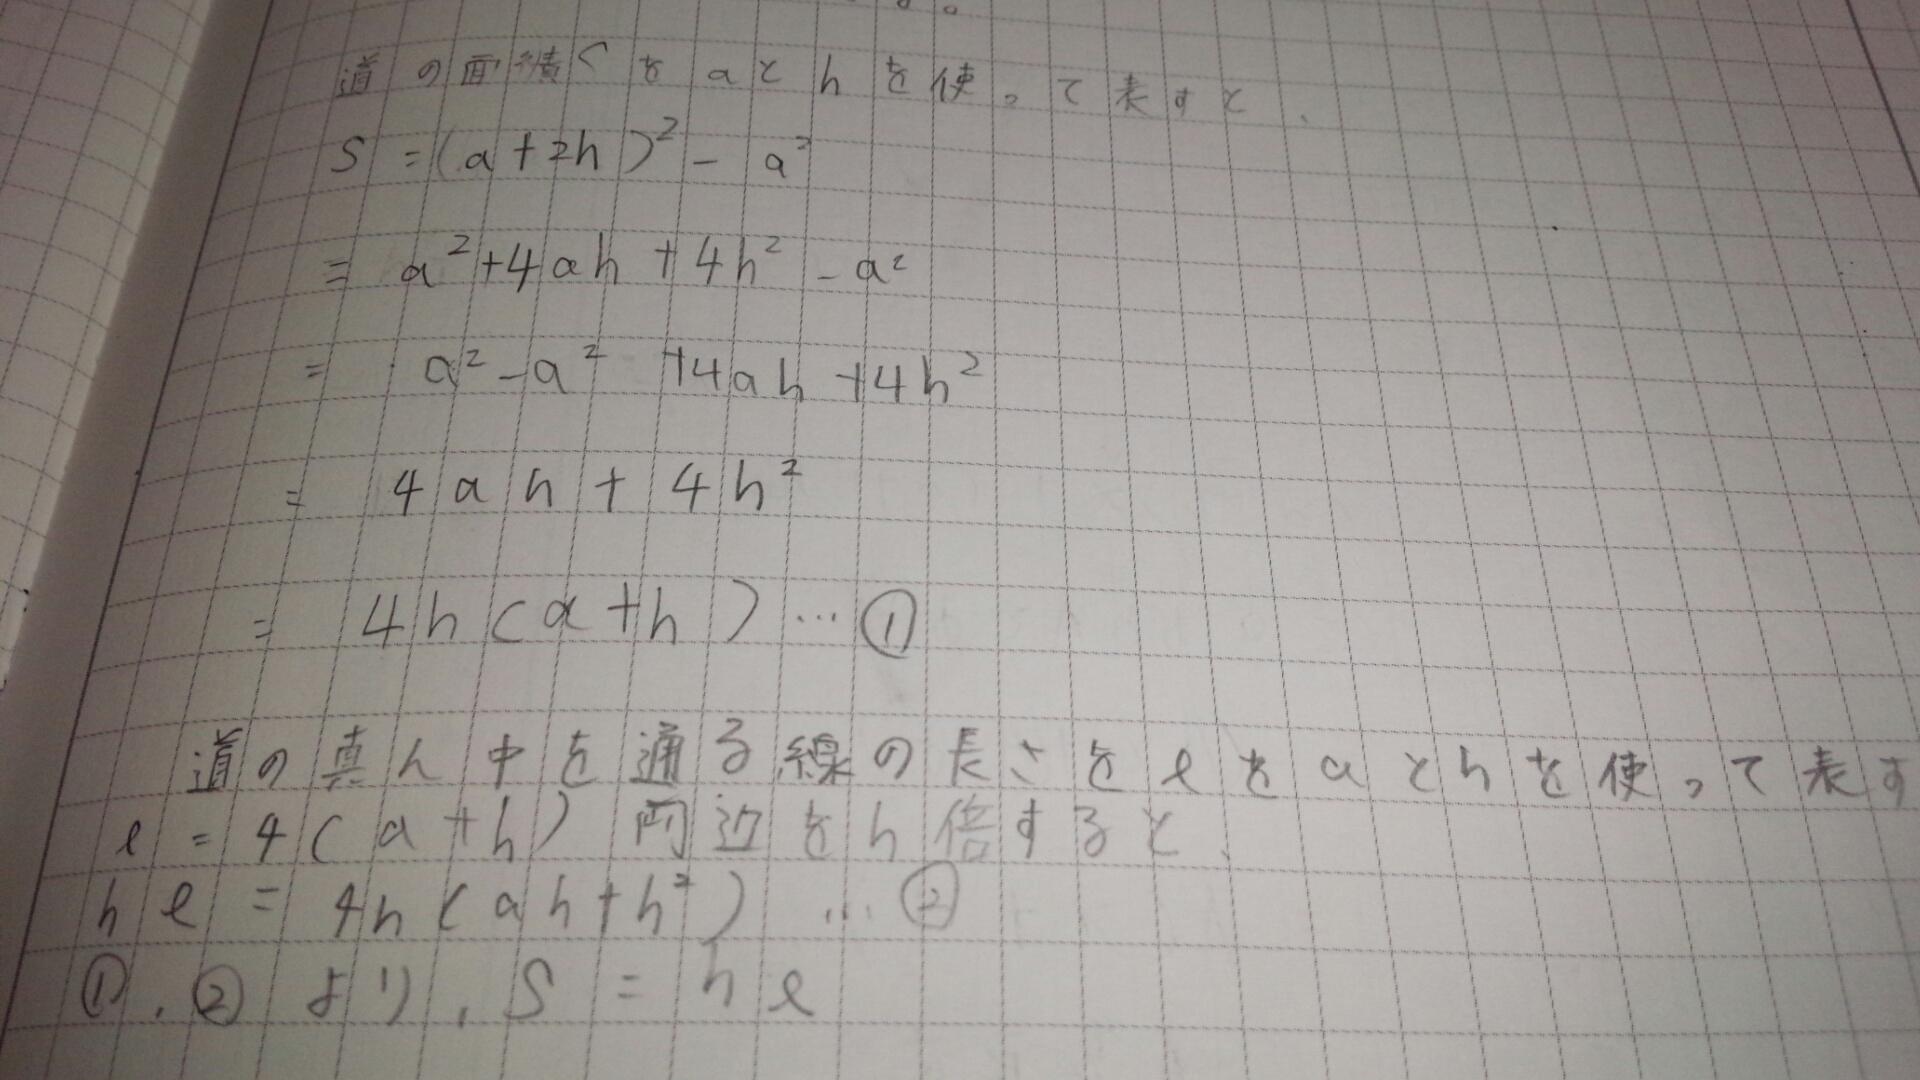 道の面積Sをaとhを使って表すと、
S=(a+2h)²-a²
=a²+4ah+4h²-a²
=a²-a²+4ah+4h²
=4ah+4h²
=4h(a+h)…①
道の真ん中を通る線の長さをℓをaとhを使って表す
ℓ=4(a+h) 両辺をh倍すると、
hℓ=4h(ah+h²)…②
①,②より,S=hℓ